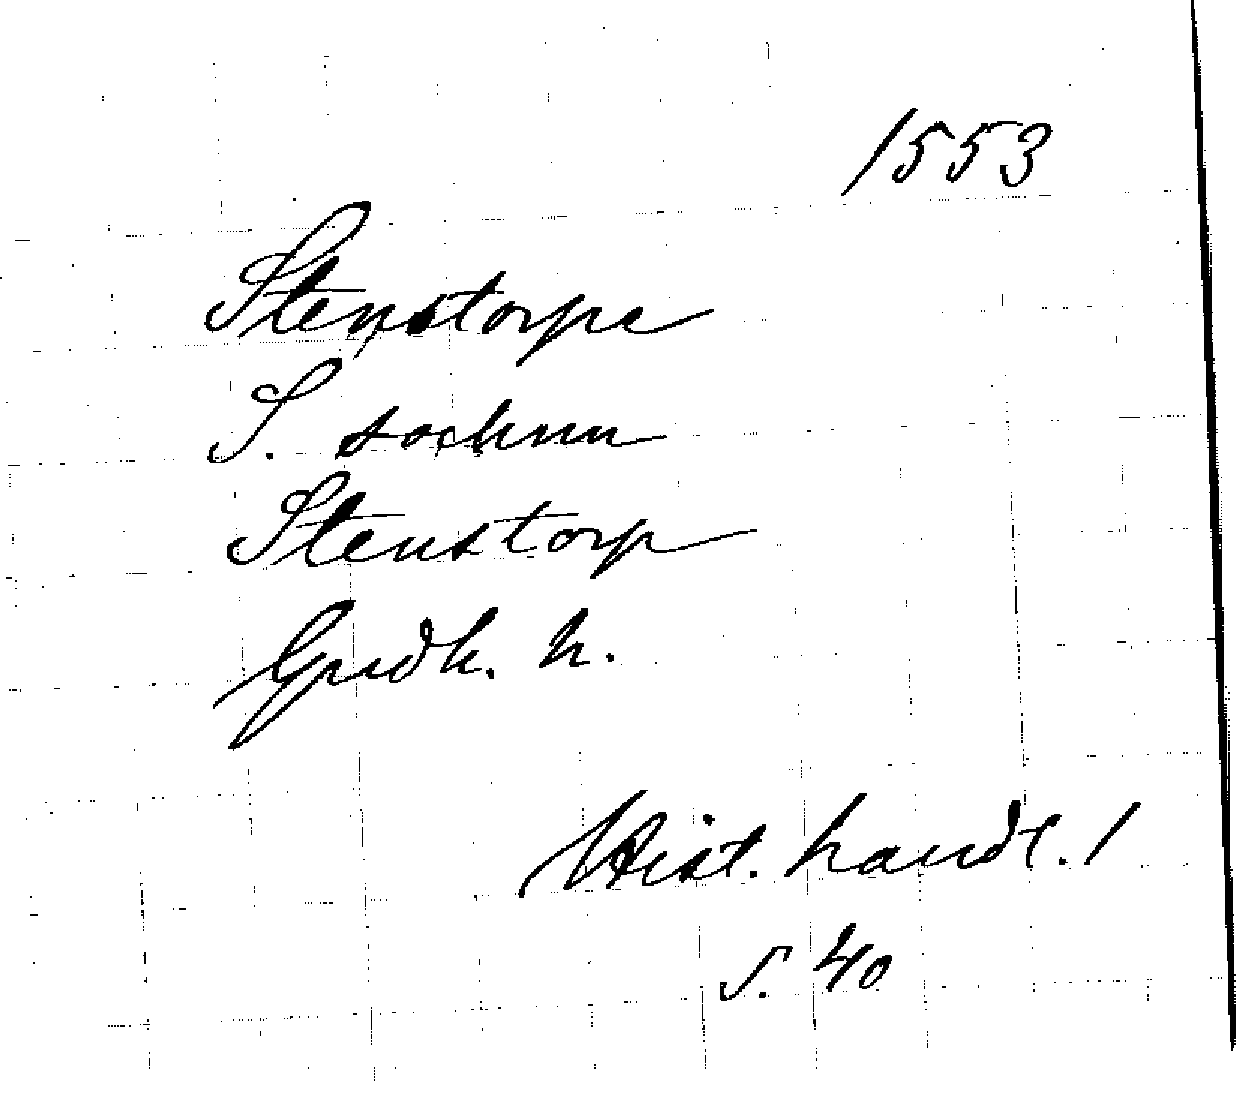 1553
Stenstorpe
S. sochnn
Stenstorp
Gudh. h.
Hist. handl. 1
s. 40